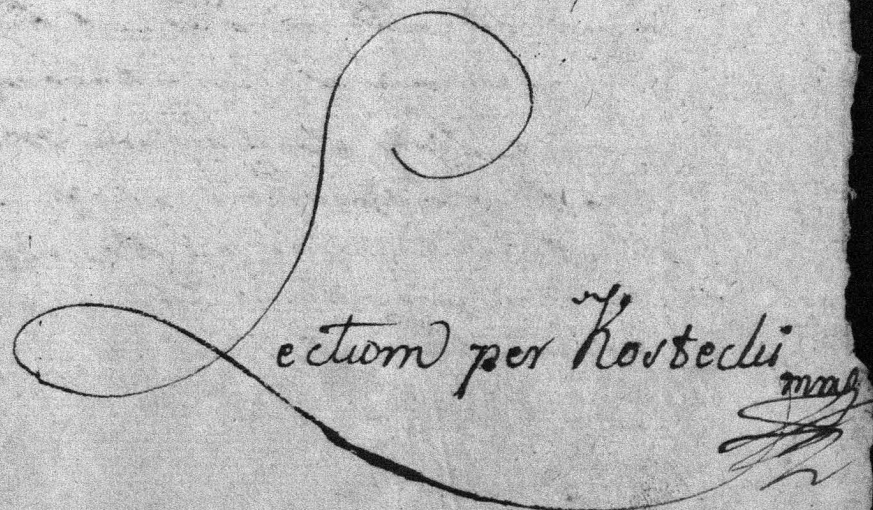 Lectum per Kostecki
mmp